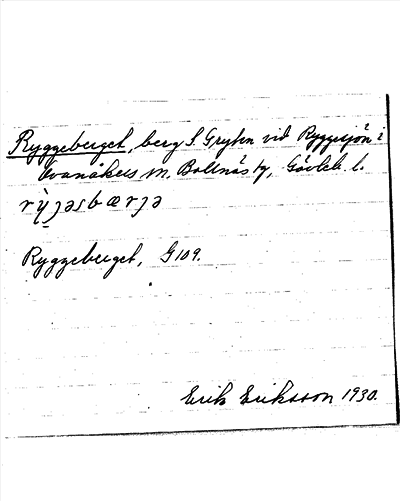 Ryggeberget, berg S. Gryten vid Ryggesjön i
Svanåkers m. Bollnäs tg, Gävleb. l.
rỳɟəsbærɟə
Ryggeberget, G109.
Erik Eriksson 1930.